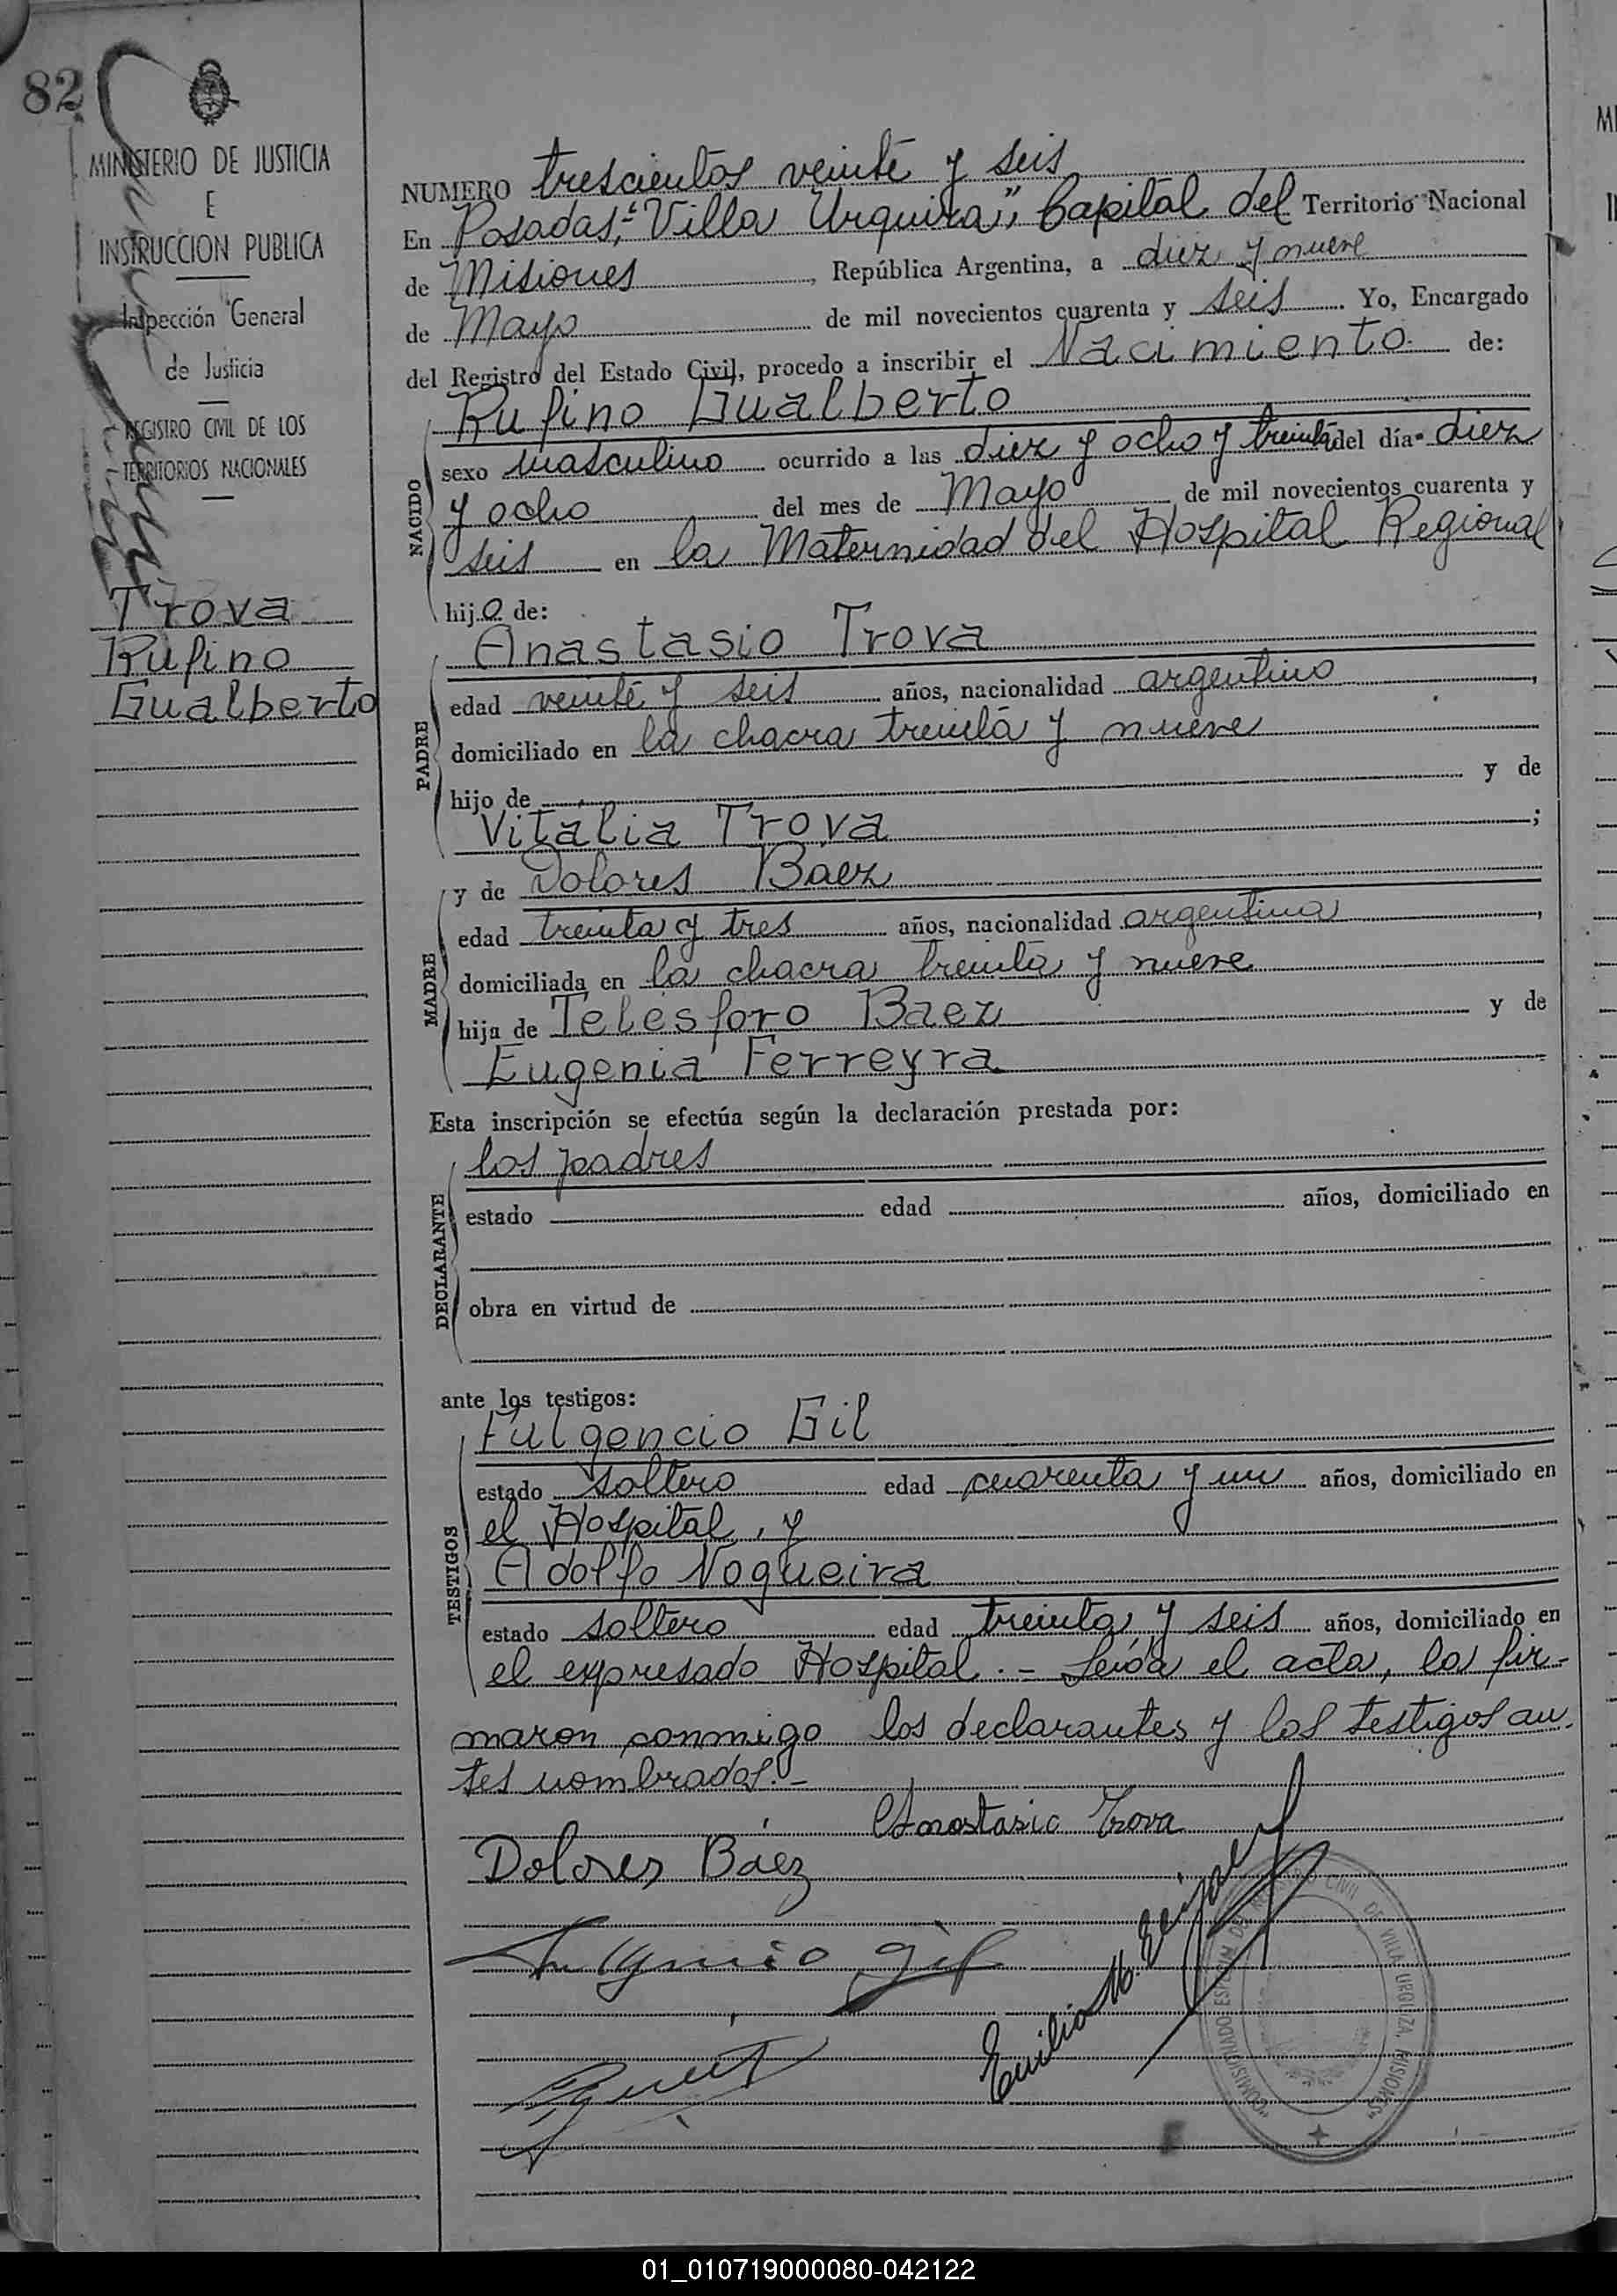 82
MINISTERIO DE JUSTICIA
E
INSTRUCCION PUBLICA
Inspección General
de Justicia
REGISTRO CIVIL DE LOS
TERRITORIOS NACIONALES
Trova
Rufino
Gualberto
NUMERO trescientos veinte y seis
En Posadas, "Villa Urquiza", Capital del Territorio Nacional
de Misiones, República Argentina, a diez y nueve
de Mayo de mil novecientos cuarenta y seis. Yo, Encargado
del Registro del Estado Civil, procedo a inscribir el Nacimiento de:
NACIDO
Rufino Gualberto
sexo masculino ocurrido a las diez y ocho y treinta del día diez
y ocho del mes de Mayo de mil novecientos cuarenta y
seis en la Maternidad del Hospital Regional
hijo de:
PADRE
Anastasio Trova
edad veinte y seis años, nacionalidad argentino,
domiciliado en la chacra treinta y nueve
hijo de y de
Vitalia Trova;
MADRE
y de Dolores Baez
edad treinta y tres años, nacionalidad argentina,
domiciliada en la chacra treinta y nueve
hija de Telésforo Baez y de
Eugenia Ferreyra
Esta inscripción se efectúa según la declaración prestada por:
DECLARANTE
los padres
estado edad años, domiciliado en
obra en virtud de
ante los testigos:
TESTIGOS
Fulgencio Gil
estado soltero edad cuarenta y un años, domiciliado en
el Hospital, y
Adolfo Nogueira
estado soltero edad treinta y seis años, domiciliado en
el expresado Hospital.- Leída el acta, la fir-
maron conmigo los declarantes y los testigos an-
tes nombrados.-
Anastasio Trova
Dolores Báez
Fulgencio Gil
Emilio M.
REGISTRO CIVIL DE VILLA URQUIZA, MISIONES
01_010719000080-042122